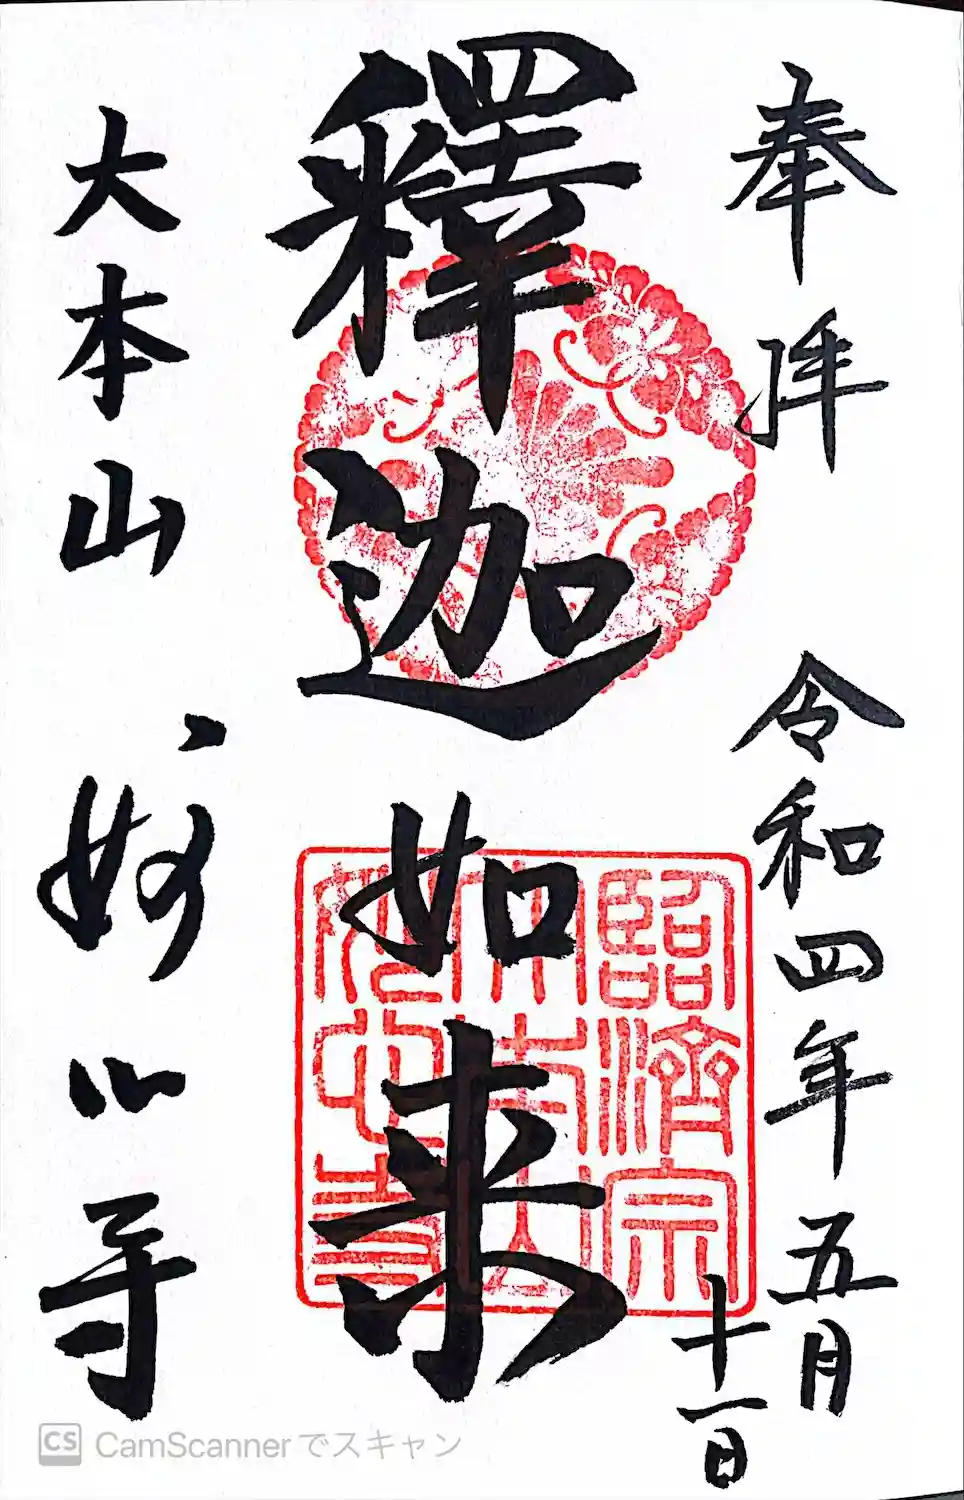 奉拝 令和四年五月
十一日
釋迦如来
大本山 妙心寺
臨濟宗
大本山
妙心寺
CS CamScannerでスキャン